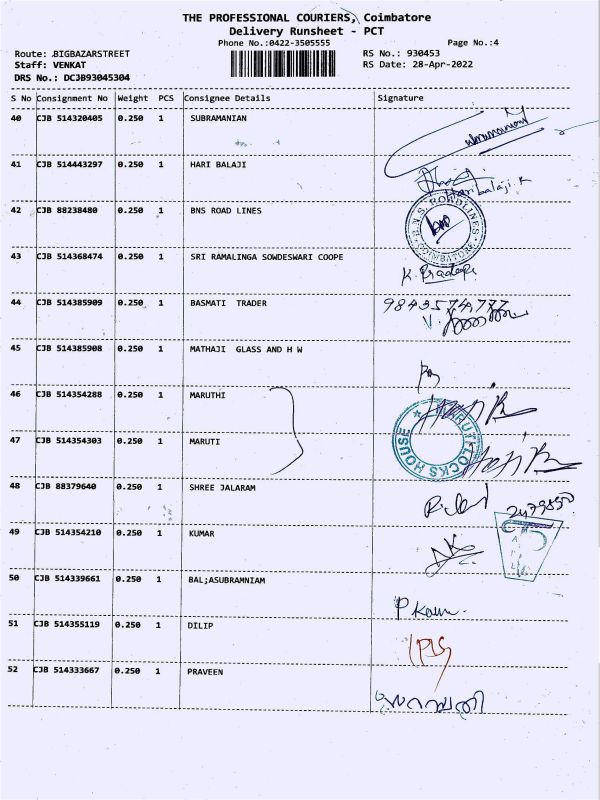 THE PROFESSIONAL COURIERS, Coimbatore
Delivery Runsheet - PCT
Phone No.:0422-3505555
Page No.:4
Route: .BIGBAZARSTREET
RS No.: 930453
Staff: VENKAT
RS Date: 28-Apr-2022
DRS No.: DCJB93045304
S No Consignment No Weight PCS Consignee Details Signature
40 CJB 514320405 0.250 1 SUBRAMANIAN
41 CJB 514443297 0.250 1 HARI BALAJI
Haribalaji.K
42 CJB 88238480 0.250 1 BNS ROAD LINES
B.N.S. ROADLINES
COIMBATORE
43 CJB 514368474 0.250 1 SRI RAMALINGA SOWDESWARI COOPE
K. Pradeep
44 CJB 514385909 0.250 1 BASMATI TRADER
9843574777
45 CJB 514385908 0.250 1 MATHAJI GLASS AND H W
46 CJB 514354288 0.250 1 MARUTHI
MARUTI LOCKS HOUSE
47 CJB 514354303 0.250 1 MARUTI
48 CJB 88379640 0.250 1 SHREE JALARAM
49 CJB 514354210 0.250 1 KUMAR
50 CJB 514339661 0.250 1 BAL;ASUBRAMNIAM
51 CJB 514355119 0.250 1 DILIP
52 CJB 514333667 0.250 1 PRAVEEN